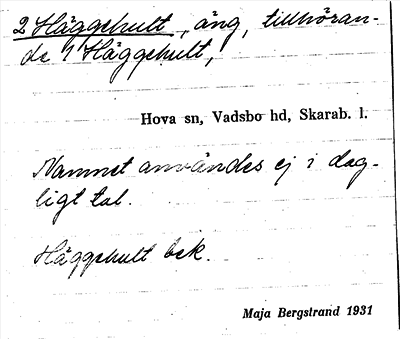 2 Häggehult, äng, tillhöran-
de 1 Häggehult,
Hova sn, Vadsbo hd, Skarab. l.
Namnet användes ej i dag-
ligt tal.
Häggehult bek.
Maja Bergstrand 1931